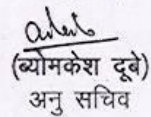 (ब्योमकेश दूबे)
अनु सचिव